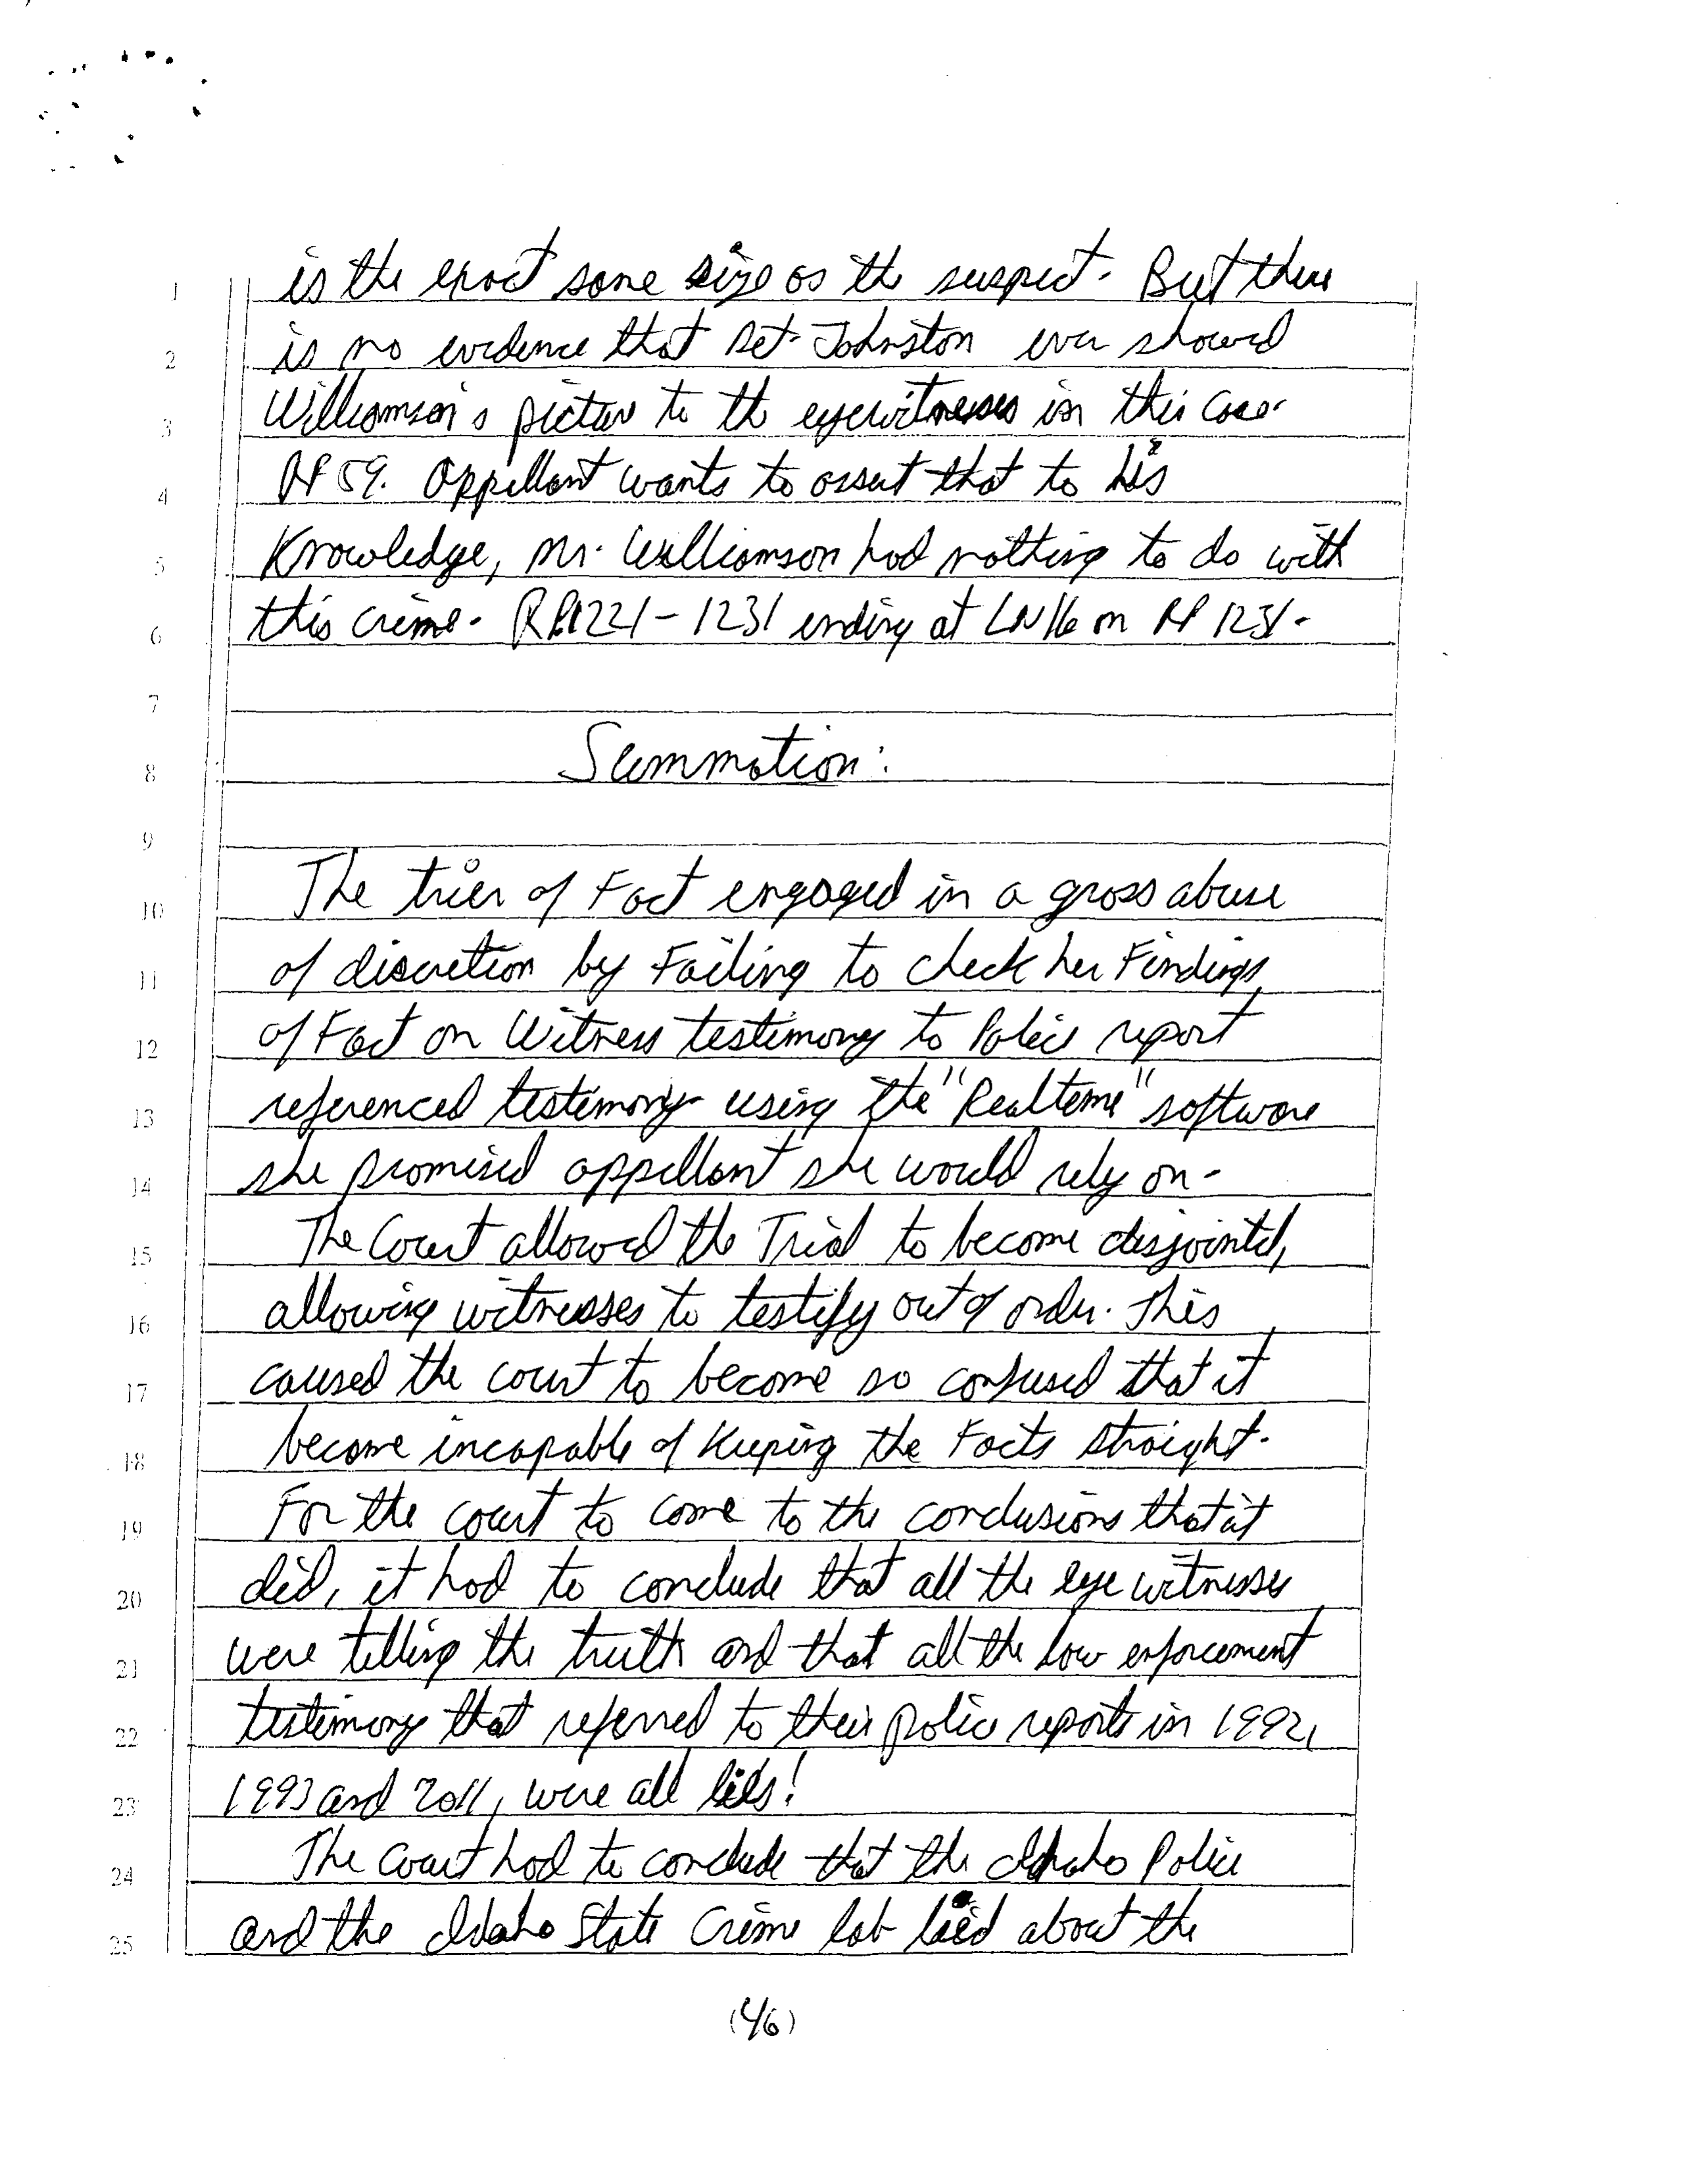 1 is the exact same size as the suspect. But there
2 is no evidence that Det. Johnston ever showed
3 Williamson's picture to the eyewitnesses in this case.
4 RP 59. Appellant wants to assert that to his
5 Knowledge, Mr. Williamson had nothing to do with
6 this crime. RP.1221-1231 ending at LN 16 on RP 1231.
7
8 Summation:
9
10 The trier of Fact engaged in a gross abuse
11 of discretion by Failing to check her Findings
12 of Fact on Witness testimony to Police report
13 referenced testimony using the "Realtime" software
14 she promised appellant she would rely on.
15 The Court allowed the Trial to become disjointed,
16 allowing witnesses to testify out of order. This
17 caused the court to become so confused that it
18 become incapable of Keeping the Facts straight.
19 For the court to come to the conclusions that it
20 did, it had to conclude that all the eye witnesses
21 were telling the truth and that all the law enforcement
22 testimony that referred to their police reports in 1992,
23 1993 and 2011, were all lies!
24 The Court had to conclude that the Idaho Police
25 and the Idaho State Crime lab lied about the
(46)